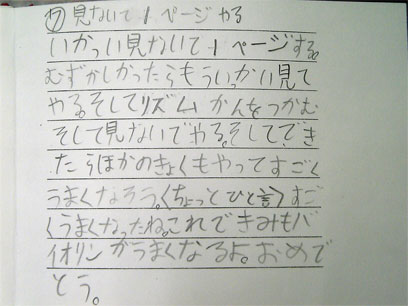 ⑰見ないで1ページやる
いかっい見ないで1ページする。
むずかしかったらもういっかい見て
やる。そしてリズムかんをつかむ
そして見ないでやる。そして、でき
たらほかのきょくもやってすごく
うまくなろう。〈ちょっとひと言〉すご
くうまくなったね。これできみもバ
イオリンがうまくなるよ。おめで
とう。